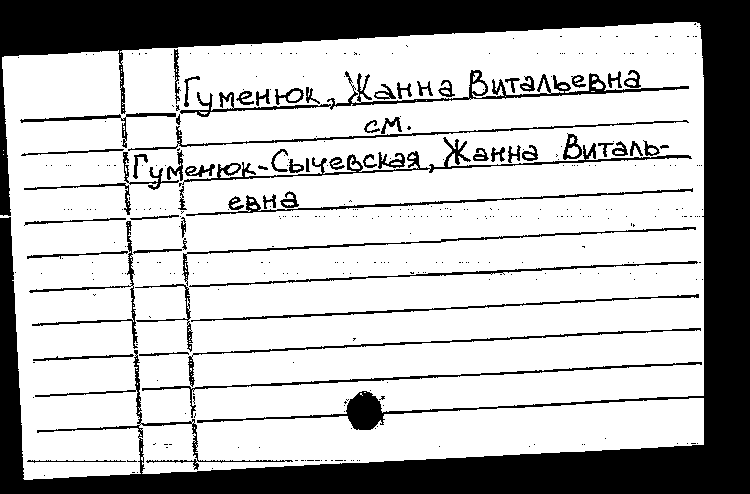 Гуменюк, Жанна Витальевна
см.
Гуменюк-Сычевская, Жанна Виталь-
евна